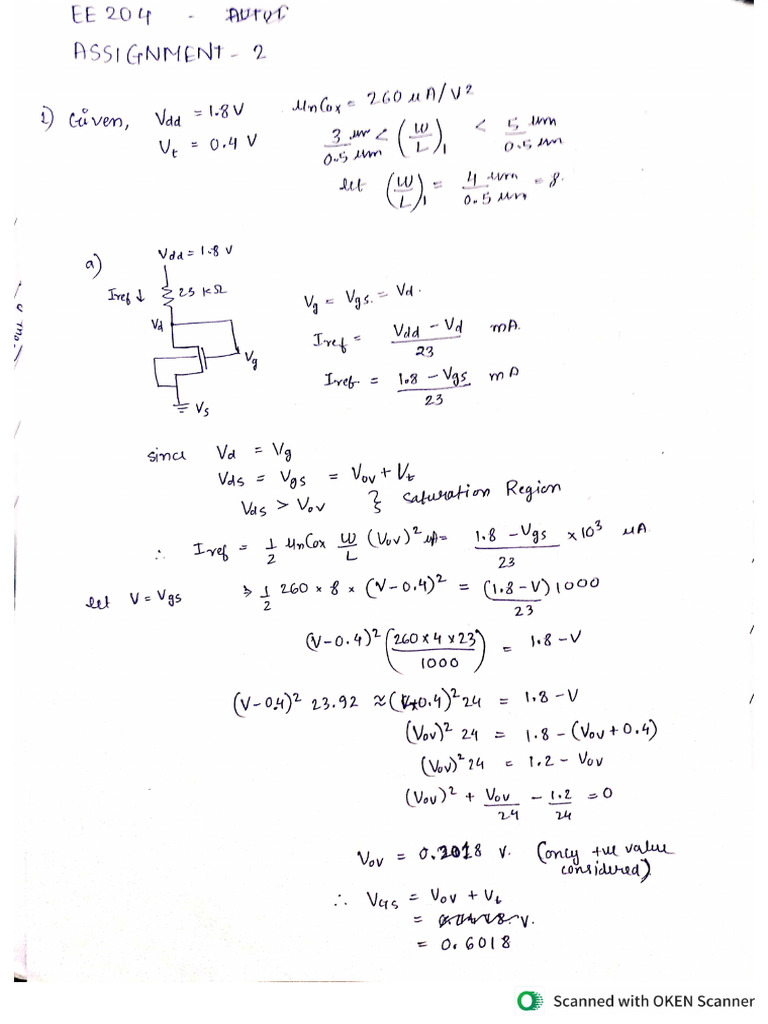 EE 204 -
ASSIGNMENT - 2
1) Given, Vdd = 1.8V MnCox = 260 μA/V²
Vt = 0.4 V 3 um/0.5 um < (W/L)1 < 5 um/0.5 um
let (W/L)1 = 4 um/0.5 um = 8.
a) Vdd = 1.8 V
Iref ↓ 23 kΩ
Vd
Vg
Vs
Vg = Vgs = Vd.
Iref = (Vdd - Vd)/23 mA.
Iref = (1.8 - Vgs)/23 mA
since Vd = Vg
Vds = Vgs = Vov + Vt
Vds > Vov } Saturation Region
∴ Iref = 1/2 MnCox W/L (Vov)² μA = (1.8 - Vgs)/23 × 10³ μA
let V = Vgs ⇒ 1/2 260 × 8 × (V - 0.4)² = (1.8 - V)1000/23
(V - 0.4)² (260 × 4 × 23/1000) = 1.8 - V
(V - 0.4)² 23.92 ≈ (V-0.4)² 24 = 1.8 - V
(Vov)² 24 = 1.8 - (Vov + 0.4)
(Vov)² 24 = 1.2 - Vov
(Vov)² + Vov/24 - 1.2/24 = 0
Vov = 0.2018 V. (only +ve value
considered)
∴ VGS = Vov + Vt
= V.
= 0.6018
Scanned with OKEN Scanner